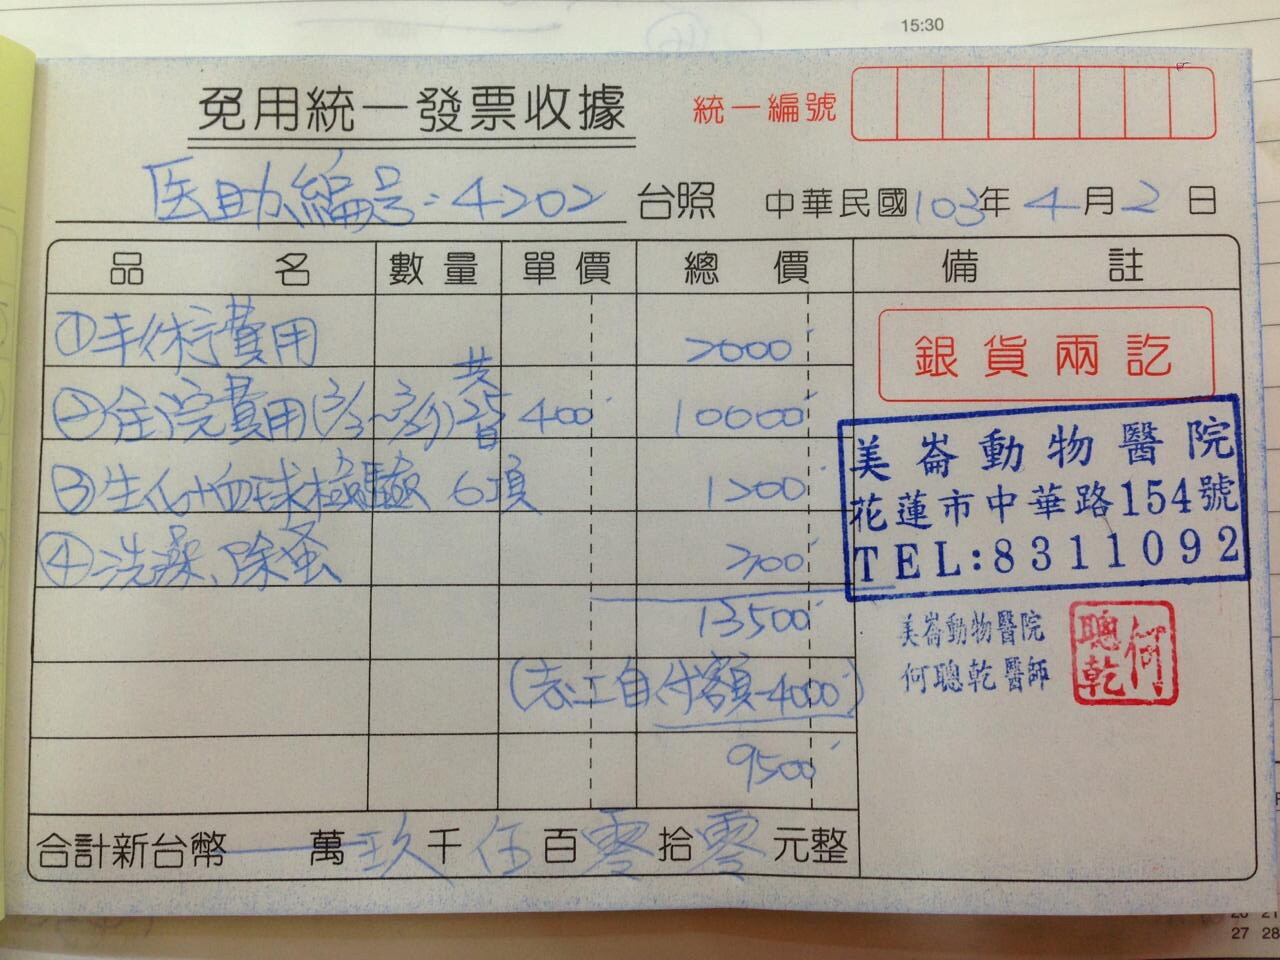 15:30
免用統一發票收據
統一編號
医助編号:4202 台照 中華民國103年4月2日
品名 數量 單價 總價 備註
①手術費用 2000
②住院費用(3/3~3/) 共25日 400 10000
③生化+血球檢驗 6項 1200
④洗澡、除蚤 300
13500
(志工自付額-4000)
9500
合計新台幣 萬玖千伍百零拾零元整
銀貨兩訖
美崙動物醫院
花蓮市中華路154號
TEL:8311092
美崙動物醫院
何聰乾醫師
何聰乾
20 21
27 28